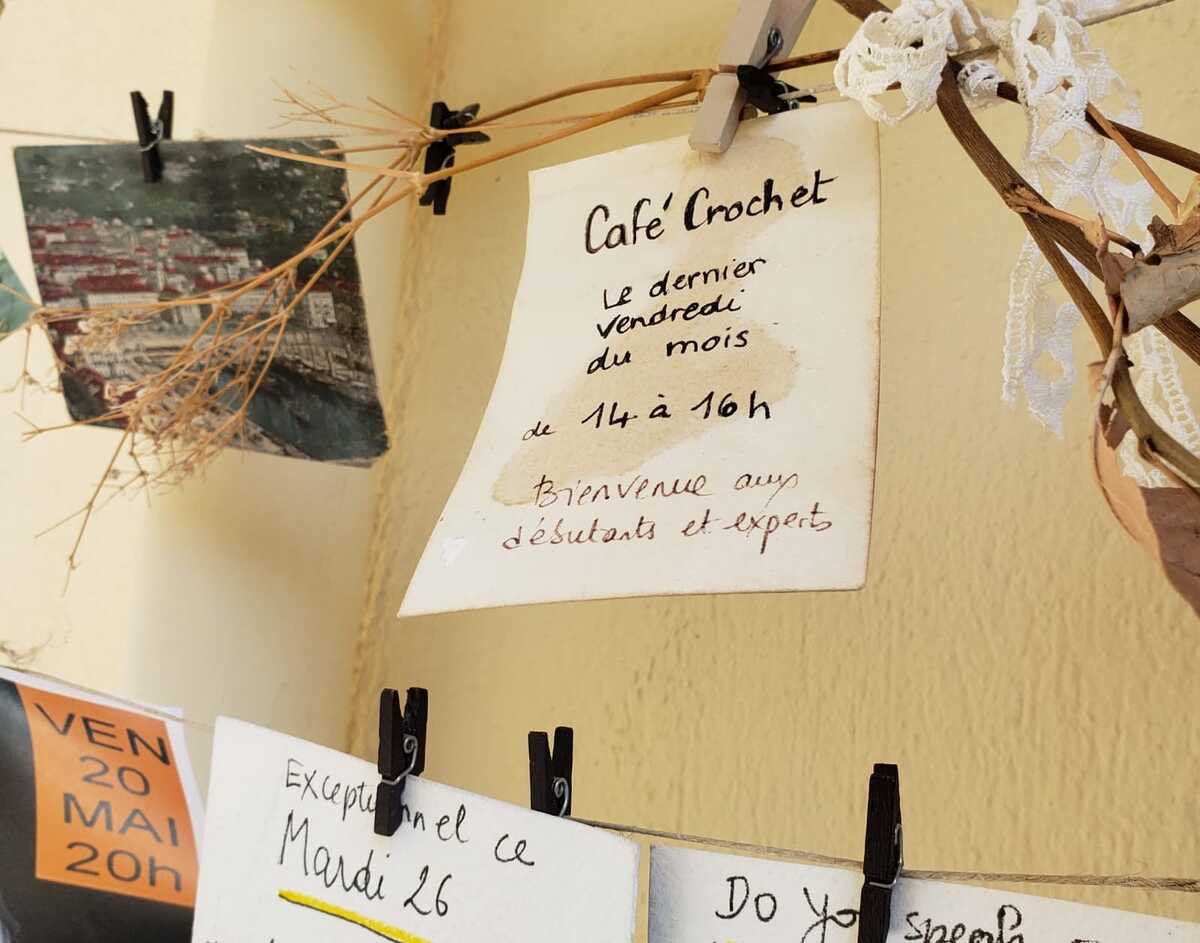 Café Crochet
Le dernier
vendredi
du mois
de 14 à 16h
Bienvenue aux
débutants et experts
VEN
20
MAI
20h
ce
Mardi 26
Do speak